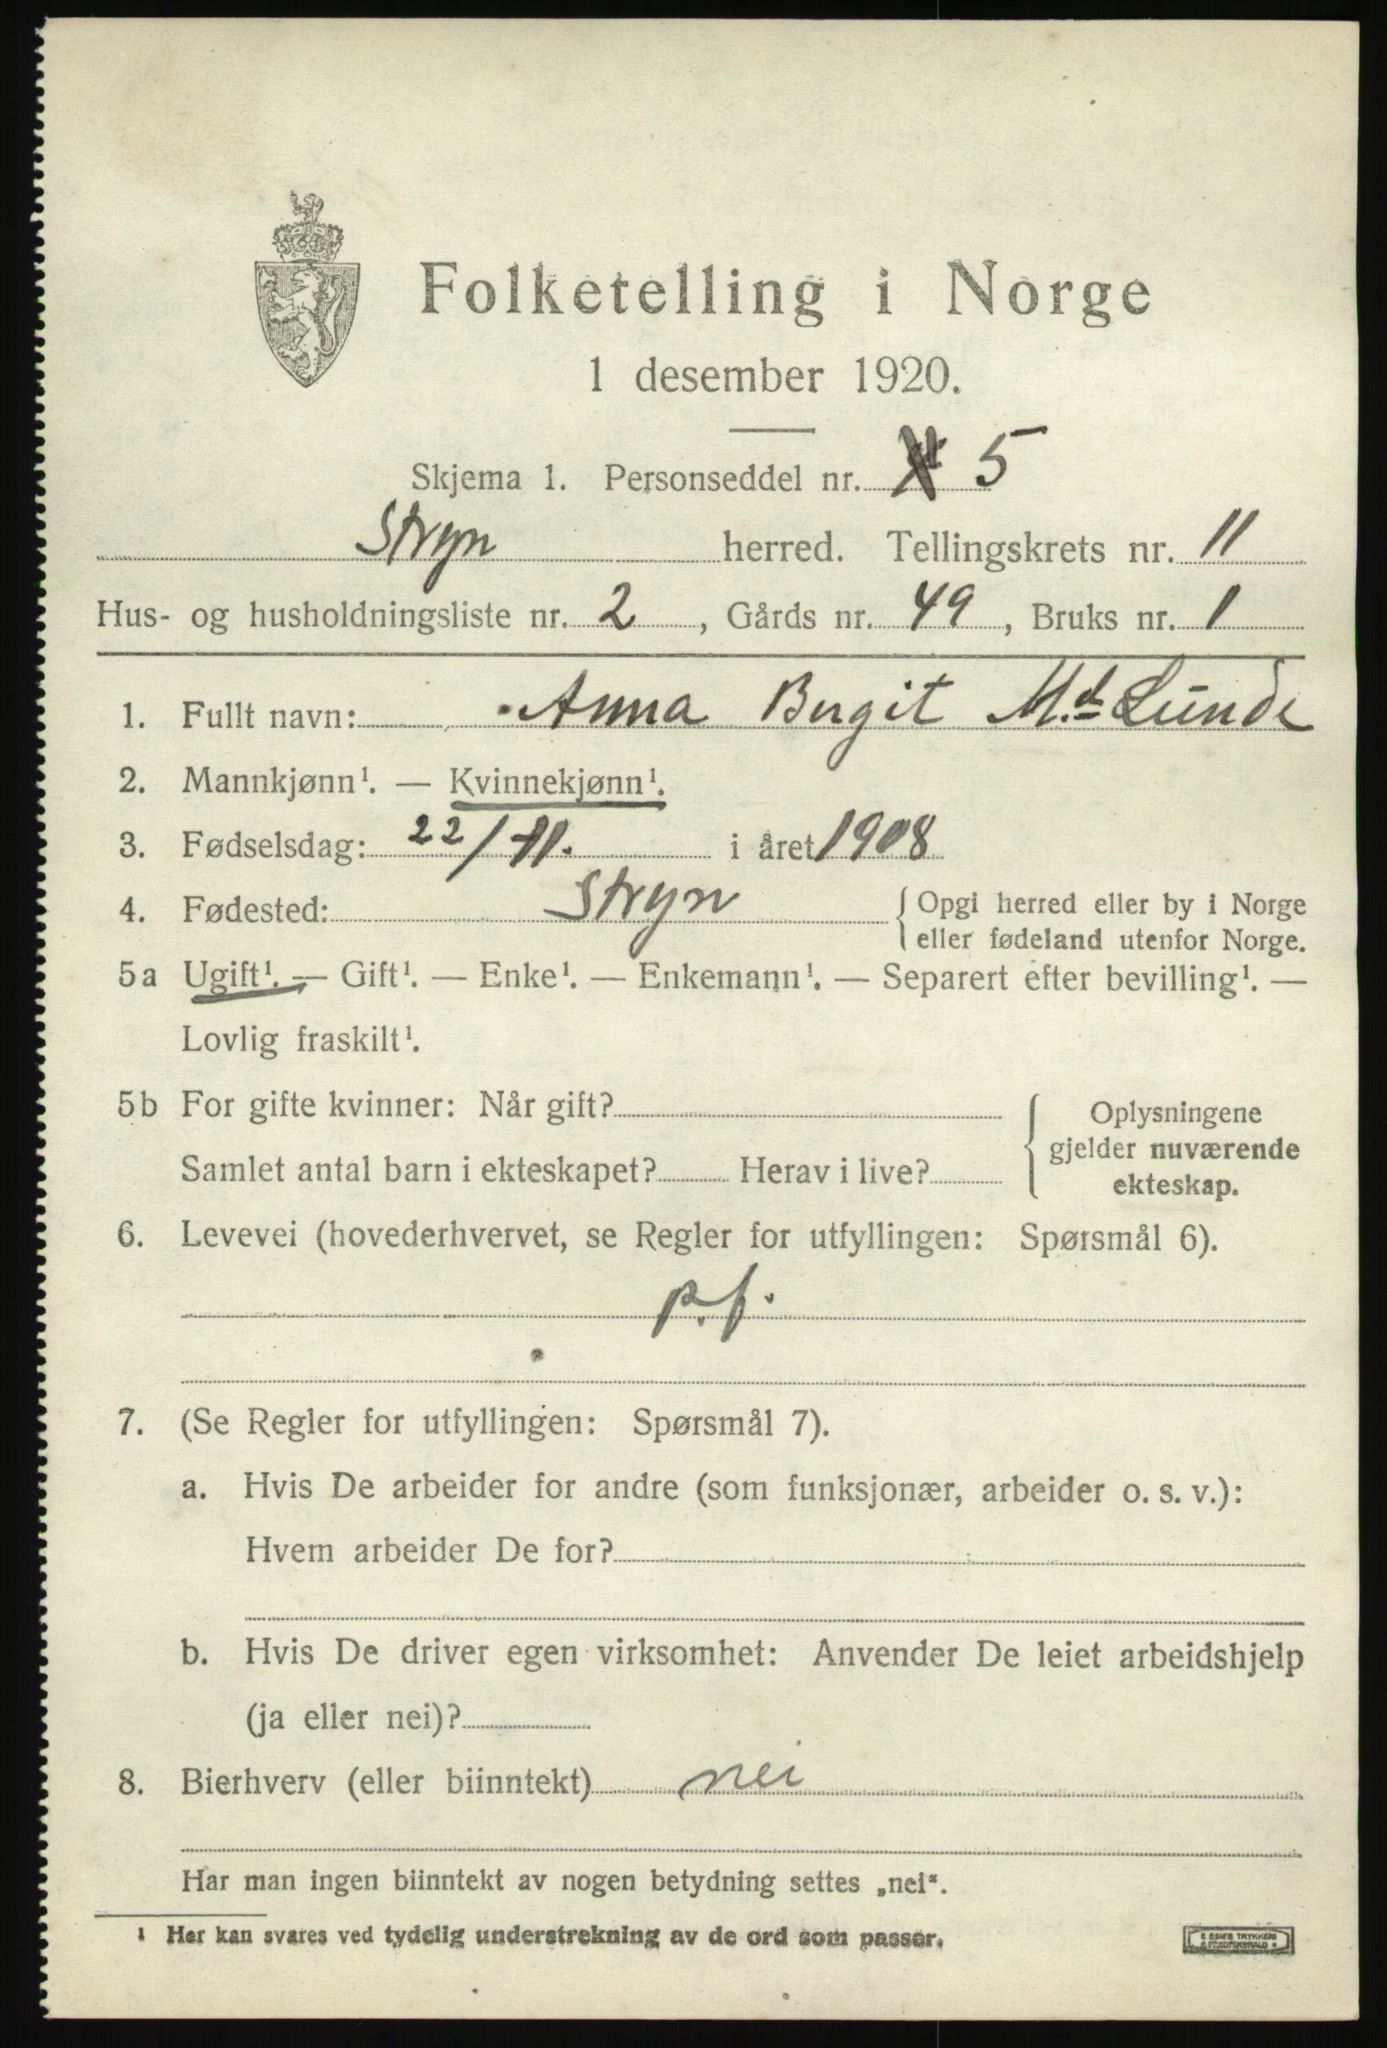 Folketelling i Norge
1 desember 1920.
Skjema 1. Personseddel nr. 5
Stryn herred. Tellingskrets nr. 11
Hus- og husholdningsliste nr. 2, Gårds nr. 49, Bruks nr. 1
1. Fullt navn: Anna Birgit M.d. Lunde
2. Mannkjønn¹. — Kvinnekjønn¹.
3. Fødselsdag: 22/11. i året 1908
4. Fødested: Stryn { Opgi herred eller by i Norge
eller fødeland utenfor Norge.
5a Ugift¹. — Gift¹. — Enke¹. — Enkemann¹. — Separert efter bevilling¹. —
Lovlig fraskilt¹.
5b For gifte kvinner: Når gift? { Oplysningene
gjelder nuværende
Samlet antal barn i ekteskapet? Herav i live?
ekteskap.
6. Levevei (hovederhvervet, se Regler for utfyllingen: Spørsmål 6).
p.f.
7. (Se Regler for utfyllingen: Spørsmål 7).
a. Hvis De arbeider for andre (som funksjonær, arbeider o. s. v.):
Hvem arbeider De for?
b. Hvis De driver egen virksomhet: Anvender De leiet arbeidshjelp
(ja eller nei)?
8. Bierhverv (eller biinntekt) nei
Har man ingen biinntekt av nogen betydning settes „nei“.
¹ Her kan svares ved tydelig understrekning av de ord som passer.